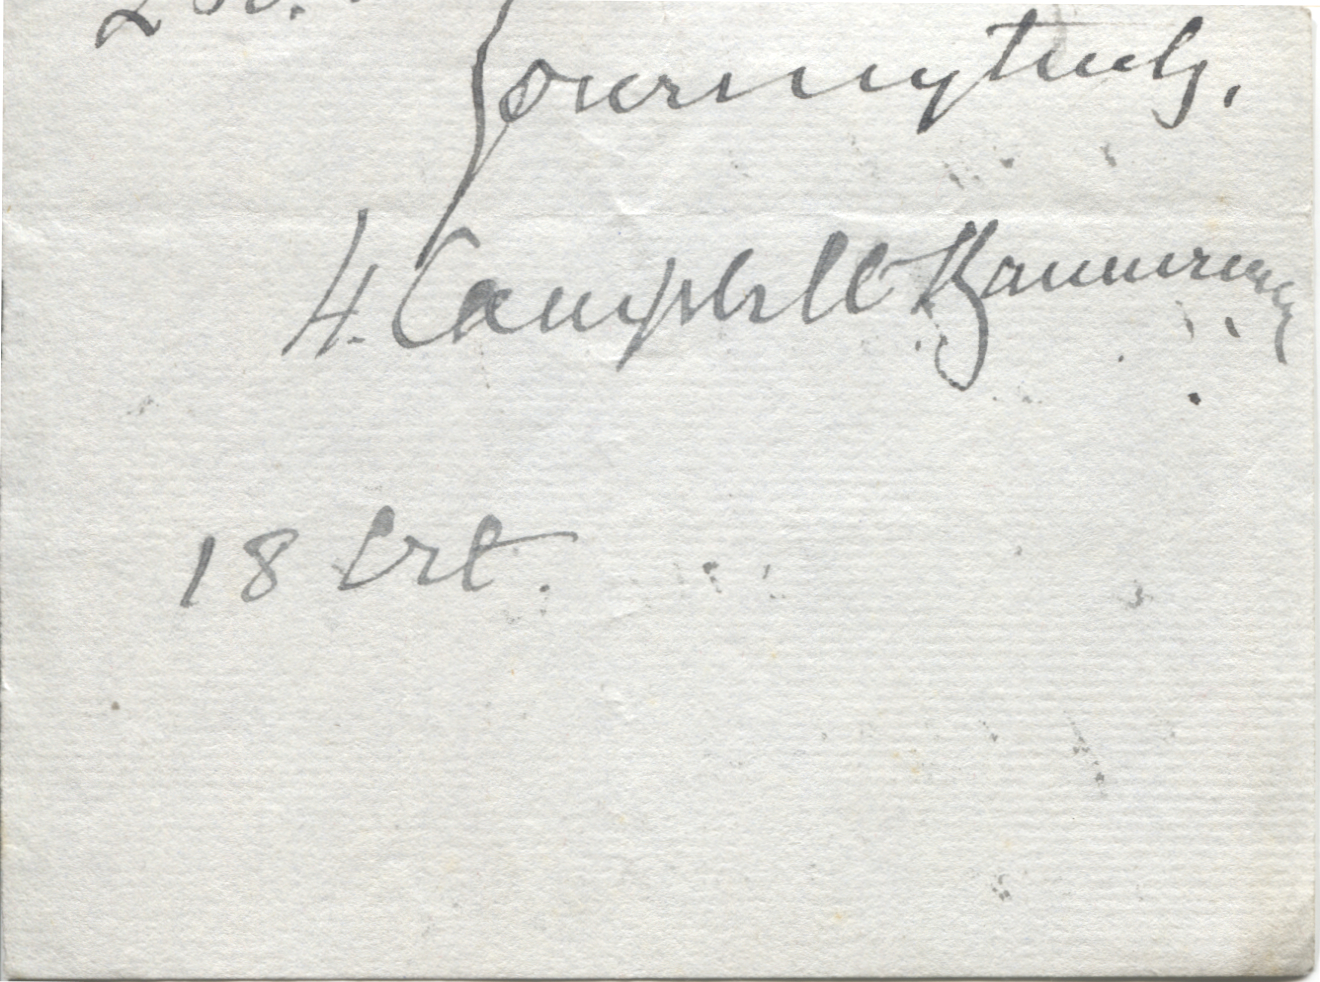 Yours very truly,
H. Campbell Bannerman
18 Oct.